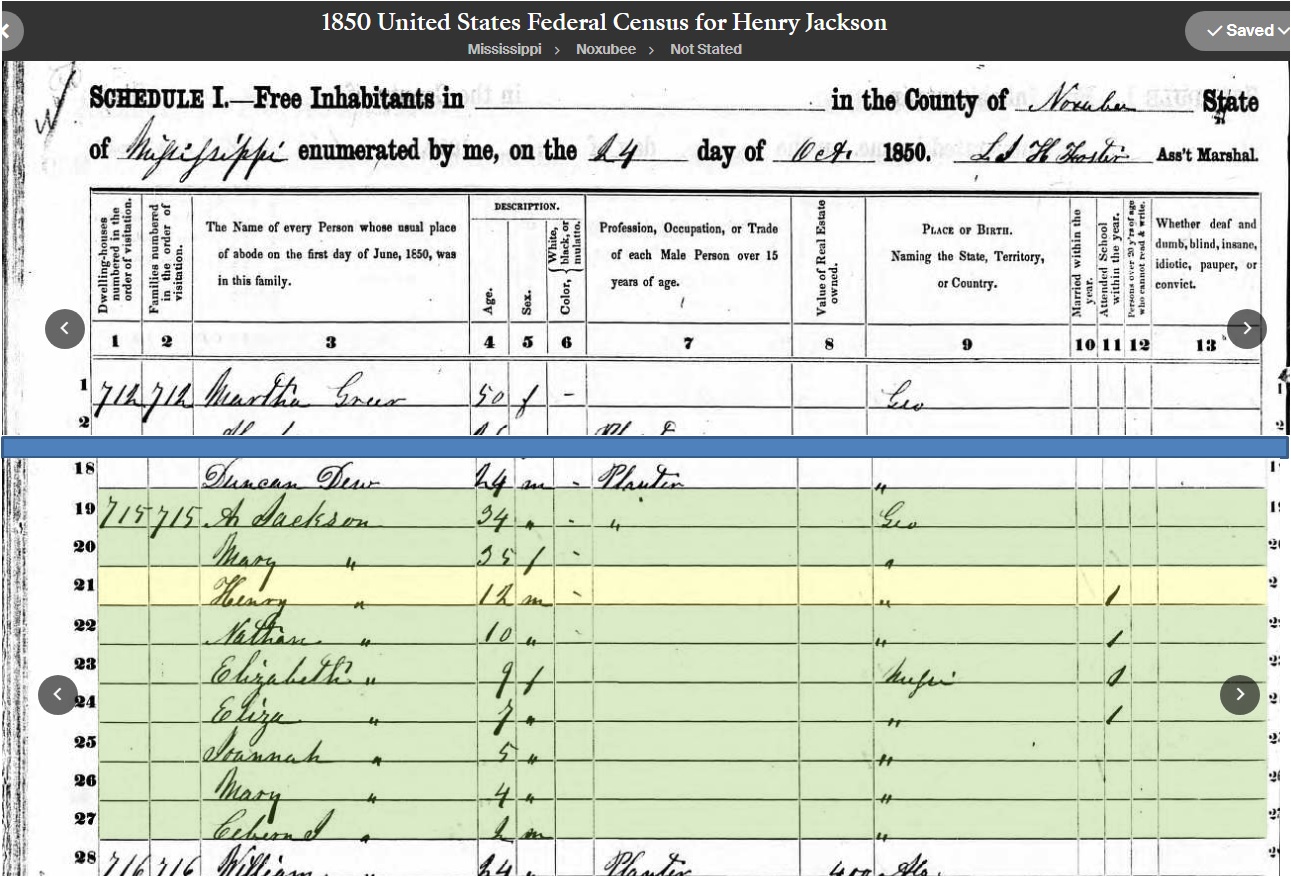 1850 United States Federal Census for Henry Jackson
Saved
Mississippi > Noxubee > Not Stated
SCHEDULE I.—Free Inhabitants in in the County of Noxubee State
of Mississippi enumerated by me, on the 24 day of Oct. 1850. Ass't Marshal.
Dwelling-houses numbered in the order of visitation.
Families numbered in the order of visitation.
The Name of every Person whose usual place of abode on the first day of June, 1850, was in this family.
DESCRIPTION.
Age.
Sex.
Color, White, black, or mulatto.
Profession, Occupation, or Trade of each Male Person over 15 years of age.
Value of Real Estate owned.
PLACE OF BIRTH. Naming the State, Territory, or Country.
Married within the year.
Attended School within the year.
Persons over 20 y'rs of age who cannot read & write.
Whether deaf and dumb, blind, insane, idiotic, pauper, or convict.
1 2 3 4 5 6 7 8 9 10 11 12 13
1 712 712 Martha Greer 50 f - Geo 1
2 2
18 Duncan Dew 24 m - Planter "
19 715 715 A Jackson 34 " - " Geo
20 Mary " 35 f - "
21 Henry " 12 m - " 1
22 Nathan " 10 " " 1
23 Elizabeth " 9 f Missi 1
24 Eliza " 7 " " 1
25 Joannah " 5 " "
26 Mary " 4 " "
27 " 2 m "
28 716 716 William " 24 " Planter 400 Ala